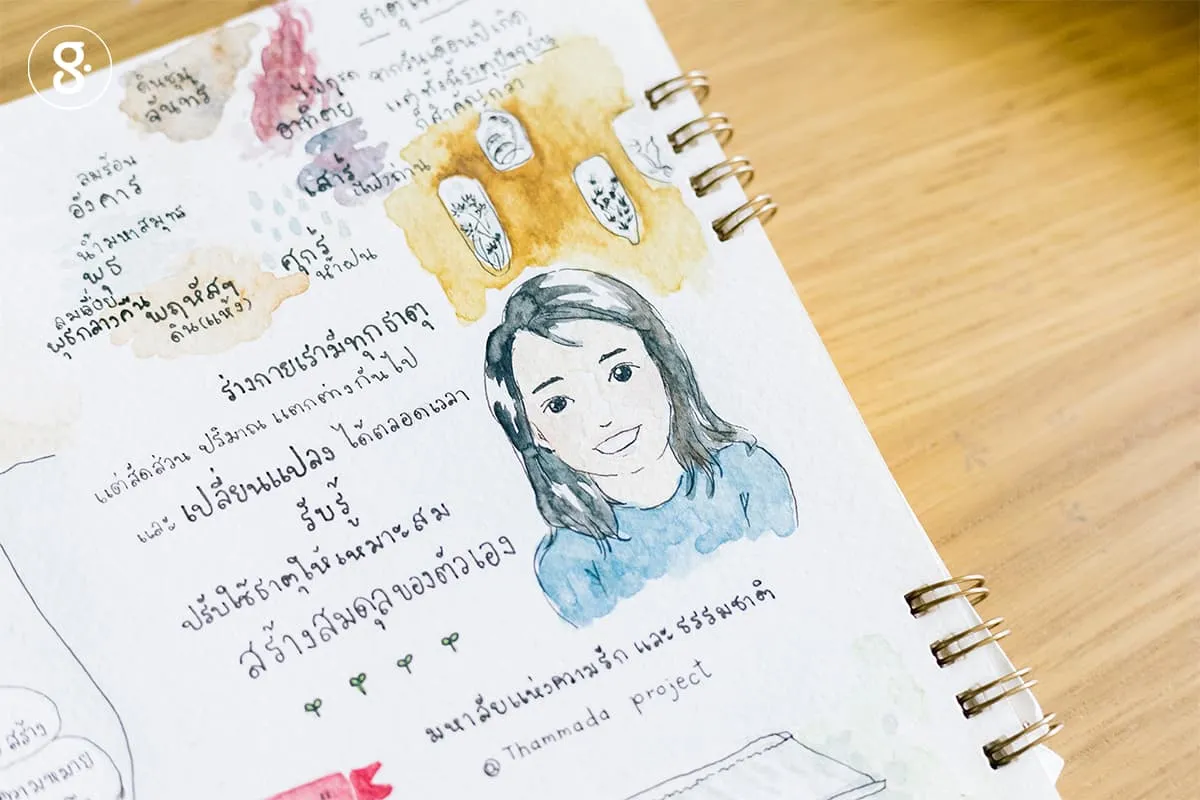 g.
ดินชุ่ม
จันทร์
ไฟจุดรถ
อาทิตย์
จากวันเดือนปีเกิด
แต่ทั้งนี้ธาตุปัจจุบัน
ก็สำคัญกว่า
ลมร้อน
อังคาร
เสาร์
ไฟถ่าน
น้ำมหาสมุทร
พุธ
ศุกร์
น้ำฝน
พุธกลางคืน
พฤหัสฯ
ดิน(แห้ง)
ร่างกายเรามีทุกธาตุ
แต่สัดส่วน ปริมาณ แตกต่างกันไป
และ เปลี่ยนแปลง ได้ตลอดเวลา
รับรู้
ปรับใช้ธาตุให้เหมาะสม
สร้างสมดุลของตัวเอง
มหาลัยแห่งความรัก และ ธรรมชาติ
@ Thammada project
สร้าง
ความหมาย